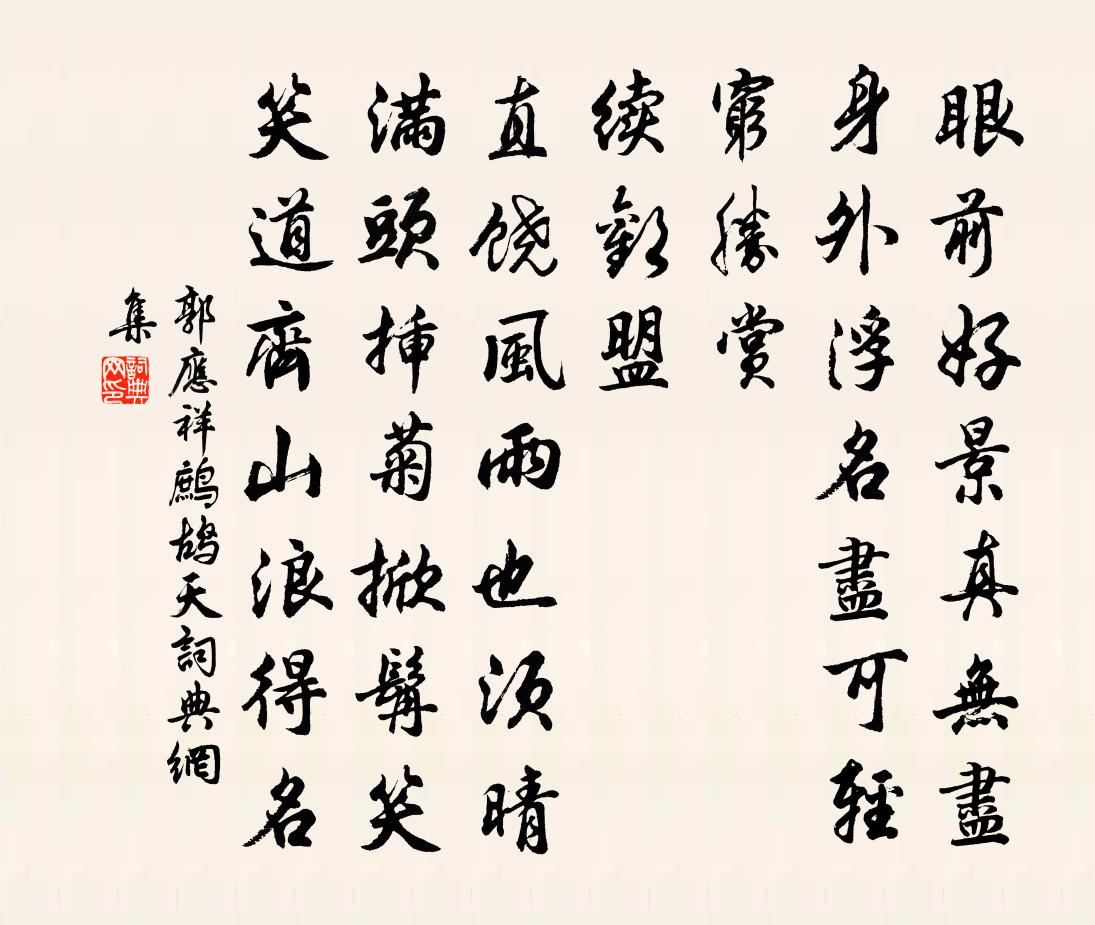 眼前好景真無盡
身外浮名盡可輕
窮勝賞
續歡盟
直饒風雨也須晴
滿頭插菊掀髯笑
笑道齊山浪得名
郭應祥鷓鴣天詞典網
集
詞典網印